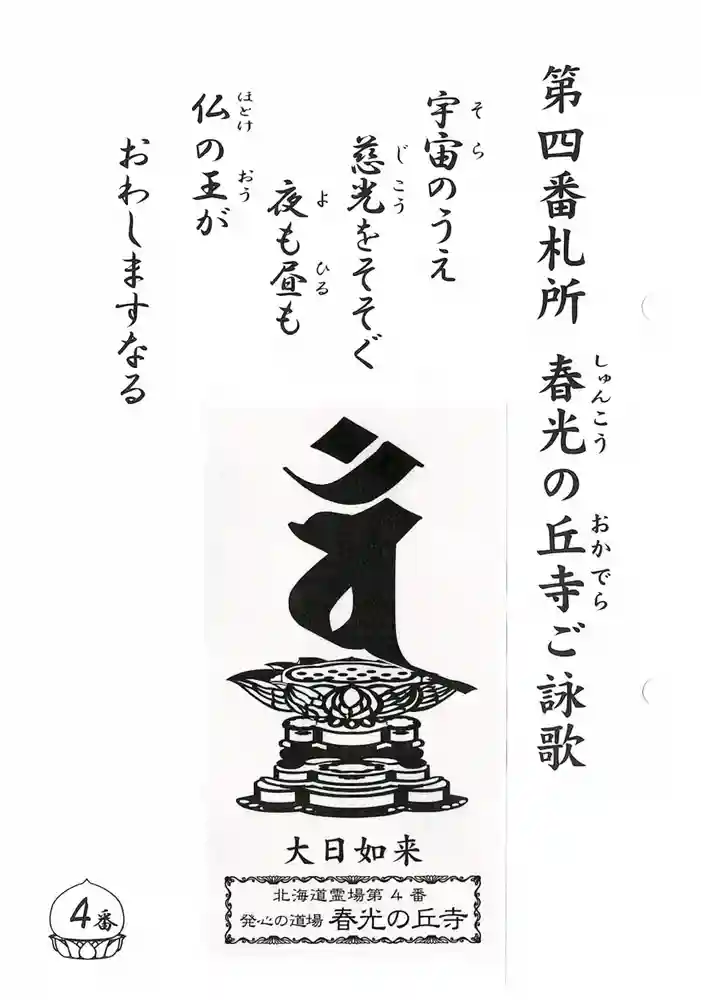 第四番札所　春光の丘寺ご詠歌
しゅんこう　おかでら
宇宙のうえ
そら
慈光をそそぐ
じこう
夜も昼も
よ　ひる
仏の王が
ほとけ　おう
おわしますなる
वं
大日如来
北海道霊場第4番
発心の道場 春光の丘寺
4番